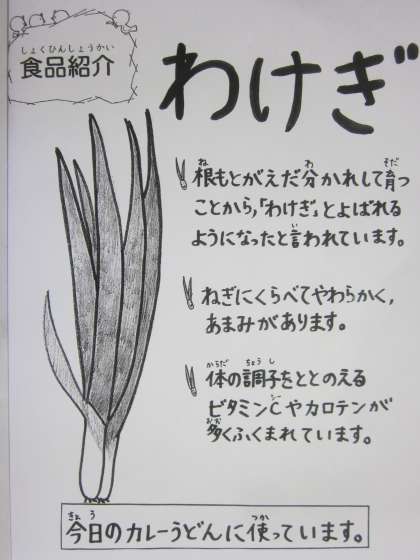 しょくひんしょうかい
食品紹介
わけぎ
根もとがえだ分かれして育つ
ことから,「わけぎ」とよばれる
ようになったと言われています。
ねぎにくらべてやわらかく,
あまみがあります。
体の調子をととのえる
ビタミンCやカロテンが
多くふくまれています。
今日のカレーうどんに使っています。